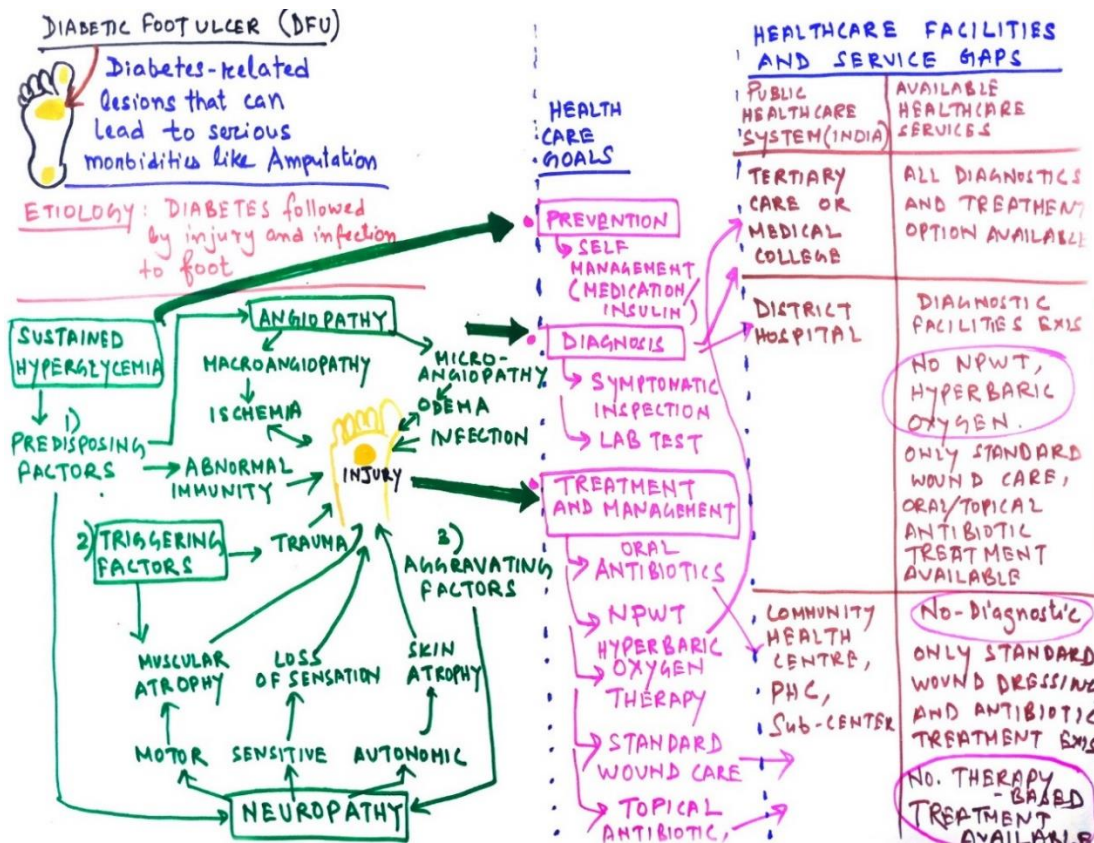 DIABETIC FOOT ULCER (DFU)
Diabetes-related
lesions that can
lead to serious
morbidities like Amputation
ETIOLOGY: DIABETES followed
by injury and infection
to foot
SUSTAINED
HYPERGLYCEMIA
1)
PREDISPOSING
FACTORS
ANGIOPATHY
MACROANGIOPATHY
MICRO-
ANGIOPATHY
ISCHEMIA
ODEMA
INFECTION
ABNORMAL
IMMUNITY
INJURY
2) TRIGGERING
FACTORS
TRAUMA
3)
AGGRAVATING
FACTORS
MUSCULAR
ATROPHY
LOSS
OF SENSATION
SKIN
ATROPHY
MOTOR
SENSITIVE
AUTONOMIC
NEUROPATHY
HEALTH
CARE
GOALS
PREVENTION
SELF
MANAGEMENT
(MEDICATION
INSULIN)
DIAGNOSIS
SYMPTOMATIC
INSPECTION
LAB TEST
TREATMENT
AND MANAGEMENT
ORAL
ANTIBIOTICS
NPWT
HYPERBARIC
OXYGEN
THERAPY
STANDARD
WOUND CARE
TOPICAL
ANTIBIOTIC,
HEALTHCARE FACILITIES
AND SERVICE GAPS
PUBLIC
HEALTHCARE
SYSTEM (INDIA)
AVAILABLE
HEALTHCARE
SERVICES
TERTIARY
CARE OR
MEDICAL
COLLEGE
ALL DIAGNOSTICS
AND TREATMENT
OPTION AVAILABLE
DISTRICT
HOSPITAL
DIAGNOSTIC
FACILITIES EXIS
NO NPWT,
HYPERBARIC
OXYGEN.
ONLY STANDARD
WOUND CARE,
ORAL/TOPICAL
ANTIBIOTIC
TREATMENT
AVAILABLE
COMMUNITY
HEALTH
CENTRE,
PHC,
Sub-CENTER
No-Diagnostic
ONLY STANDARD
WOUND DRESSING
AND ANTIBIOTIC
TREATMENT EXIS
NO. THERAPY
-BASED
TREATMENT
AVAILABLE